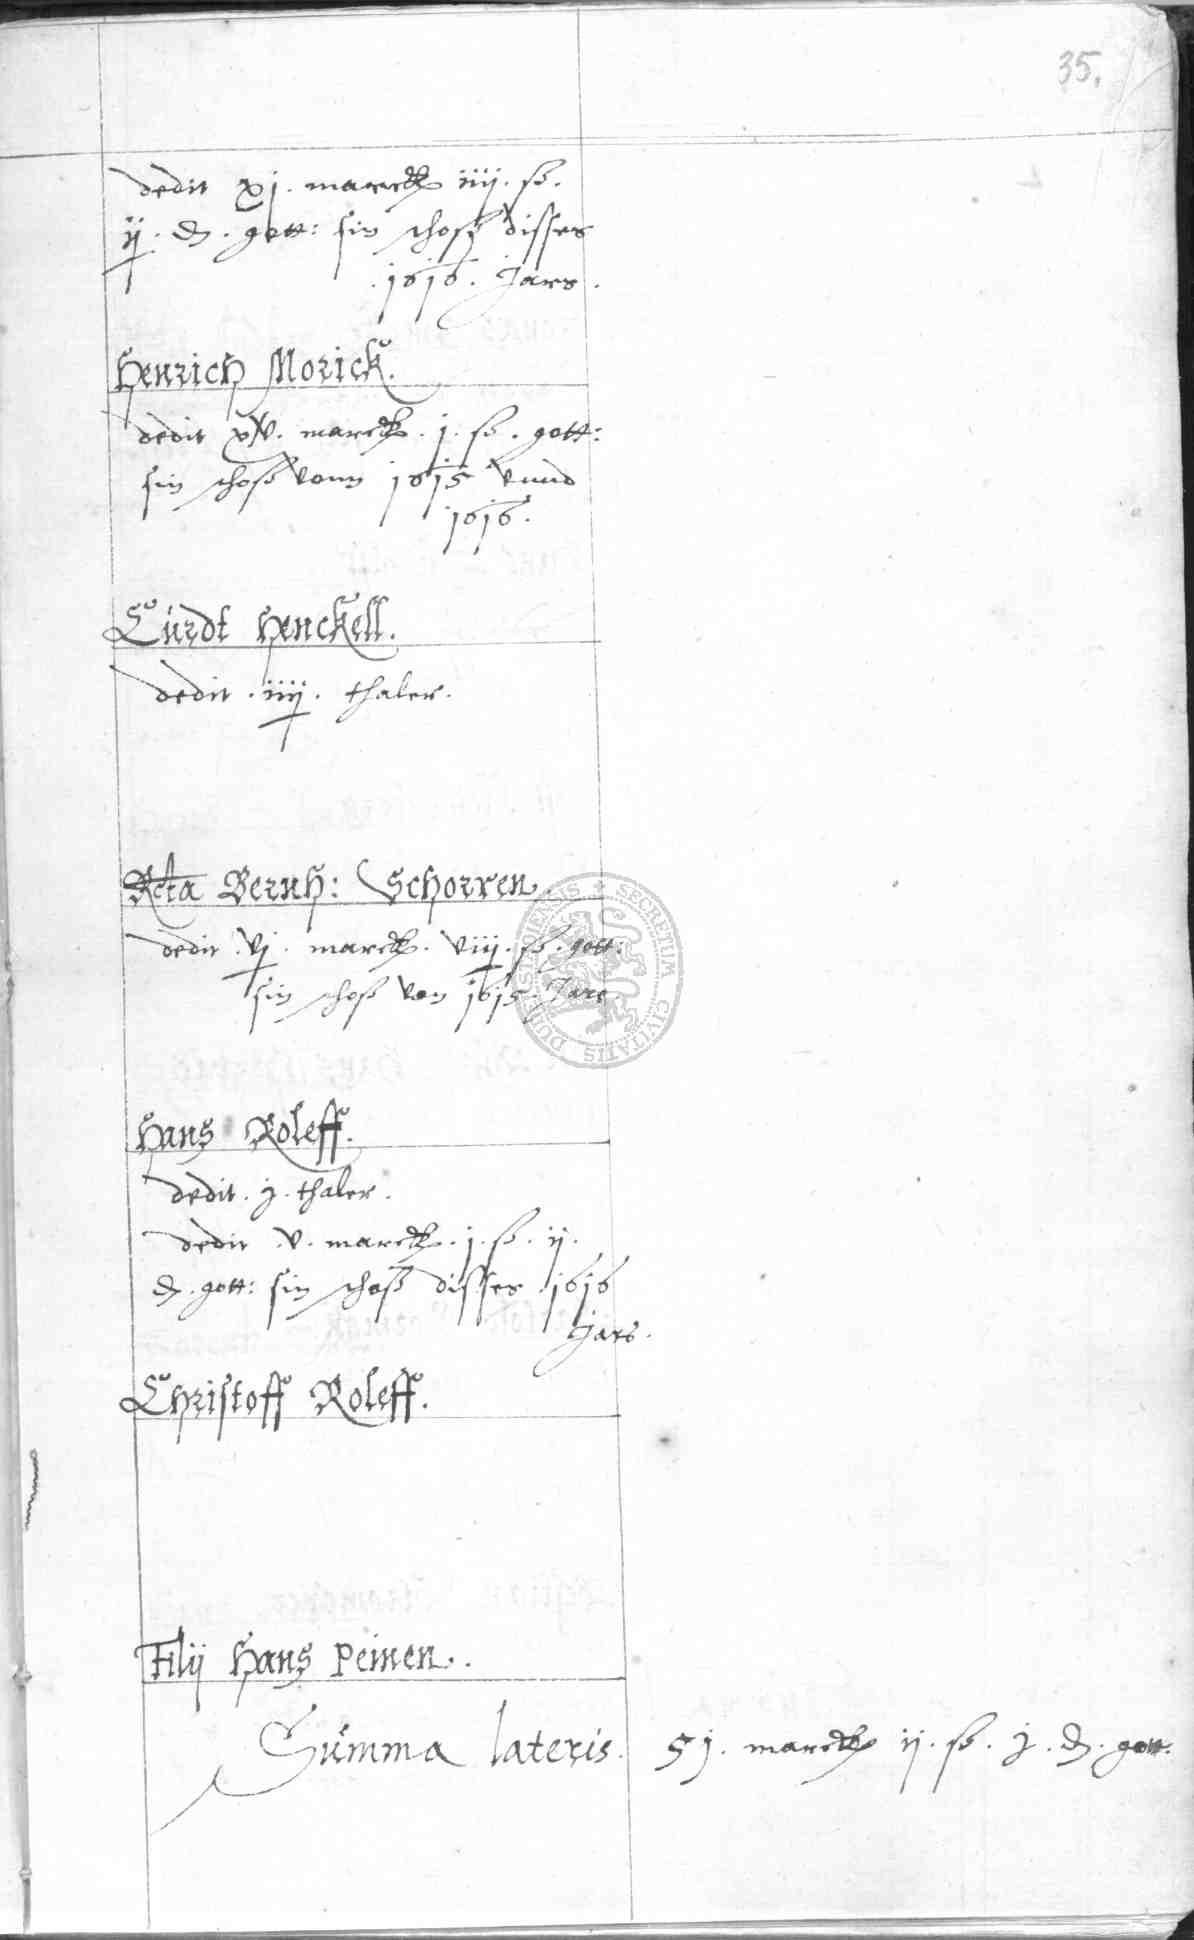 35.
dedit xj. marck iiij. ß.
ij. d. gott: sin schoß disses
.1616. Jars.
Henrich Morick.
dedit xv. marck. j. ß. gott:
sin schoß vonn 1615 vnnd
1616.
Curdt Henckell.
dedit. iiij. thaler.
Rcta Bernh: Schorren.
dedit. vj. marck. viij. ß. gott:
sin schoß von 1615. Jare
Hans Roleff.
dedit. j. thaler.
dedit. v. marck. j. ß. ij.
d. gott: sin schoß disses 1616
Jars.
Christoff Roleff.
Filij Hans Peinen.
Summa lateris. 51. marck ij. ß. j. d. gott.
SECRETUM CIVITATIS